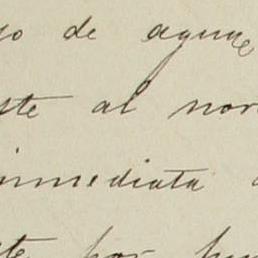 de aguas
ste al nor
inmediata
te por